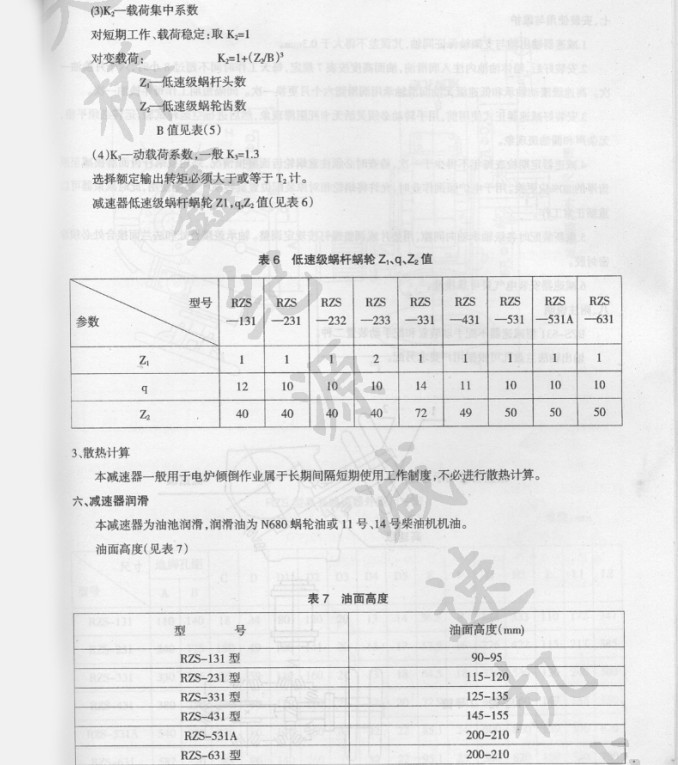 (3)K₂—载荷集中系数
对短期工作、载荷稳定:取 K₂=1
对变载荷: K₂=1+(Z₂/B)³
Z₁—低速级蜗杆头数
Z₂—低速级蜗轮齿数
B 值见表(5)
(4)K₃—动载荷系数,一般 K₃=1.3
选择额定输出转矩必须大于或等于 T₂计。
减速器低速级蜗杆蜗轮 Z1,q,Z₂ 值(见表 6)
表 6 低速级蜗杆蜗轮 Z₁、q、Z₂ 值
型号 RZS RZS RZS RZS RZS RZS RZS RZS RZS
参数 —131 —231 —232 —233 —331 —431 —531 —531A —631
Z₁ 1 1 1 2 1 1 1 1 1
q 12 10 10 10 14 11 10 10 10
Z₂ 40 40 40 40 72 49 50 50 50
3、散热计算
本减速器一般用于电炉倾倒作业属于长期间隔短期使用工作制度,不必进行散热计算。
六、减速器润滑
本减速器为油池润滑,润滑油为 N680 蜗轮油或 11 号、14 号柴油机机油。
油面高度(见表 7)
表 7 油面高度
型 号 油面高度(mm)
RZS-131 型 90-95
RZS-231 型 115-120
RZS-331 型 125-135
RZS-431 型 145-155
RZS-531A 200-210
RZS-631 型 200-210
桥鑫纪源减速机